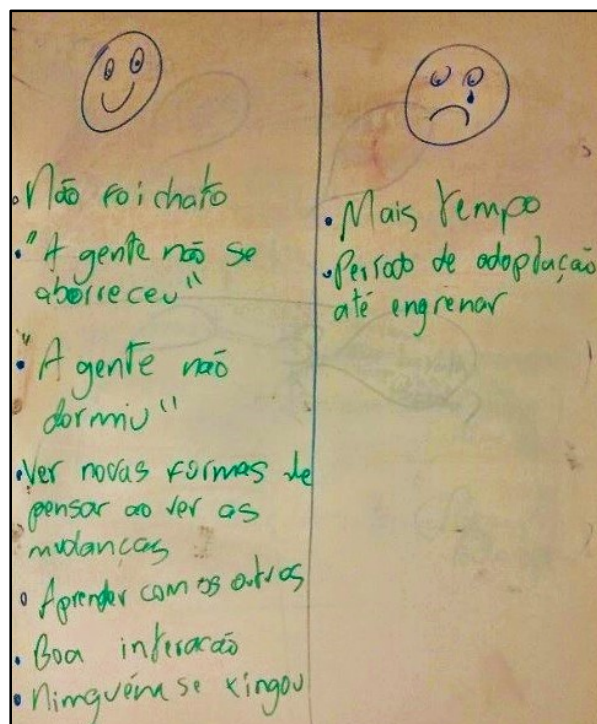 • Não foi chato
• "A gente não se
aborreceu"
• "A gente não
dormiu"
• Ver novas formas de
pensar ao ver as
mudanças
• Aprender com os outros
• Boa interação
• Ninguém se xingou
• Mais tempo
• Período de adaptação
até engrenar